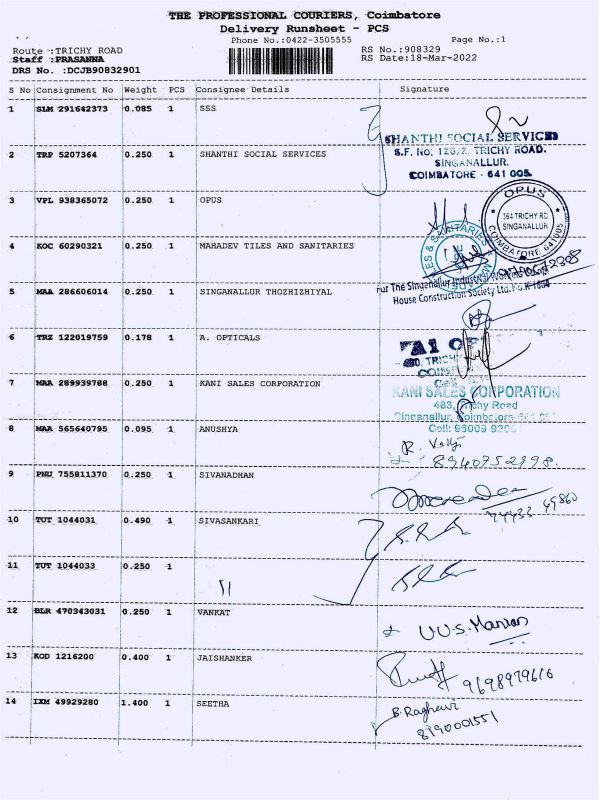 THE PROFESSIONAL COURIERS, Coimbatore
Delivery Runsheet - PCS
Phone No.:0422-3505555 Page No.:1
Route :TRICHY ROAD RS No.:908329
Staff :PRASANNA RS Date:18-Mar-2022
DRS No. :DCJB90832901
S No Consignment No Weight PCS Consignee Details Signature
1 SLM 291642373 0.085 1 SSS
SHANTHI SOCIAL SERVICES
S.F. No: 126/2, TRICHY ROAD.
2 TRP 5207364 0.250 1 SHANTHI SOCIAL SERVICES
SINGANALLUR.
COIMBATORE - 641 005.
3 VPL 938365072 0.250 1 OPUS
OPUS
364 TRICHY RD
SINGANALLUR
COIMBATORE 641005
4 KOC 60290321 0.250 1 MAHADEV TILES AND SANITARIES
5 MAA 286606014 0.250 1 SINGANALLUR THOZHIZHIYAL
For The Singanallur Industrial Working
House Construction Society Ltd.
6 TRZ 122019759 0.178 1 A. OPTICALS
A1
7 MAA 289939788 0.250 1 KANI SALES CORPORATION
KANI SALES CORPORATION
483, Trichy Road
Singanallur, Coimbatore
Cell: 96009
8 MAA 565640795 0.095 1 ANUSHYA
R.
8940752198.
9 PNU 755811370 0.250 1 SIVANADHAN
74433 49860
10 TUT 1044031 0.490 1 SIVASANKARI
11 TUT 1044033 0.250 1
12 BLR 470343031 0.250 1 VANKAT
UU.S.Manian
13 KOD 1216200 0.400 1 JAISHANKER
9698979616
14 IXM 49929280 1.400 1 SEETHA
B.Raghavi
8190001551